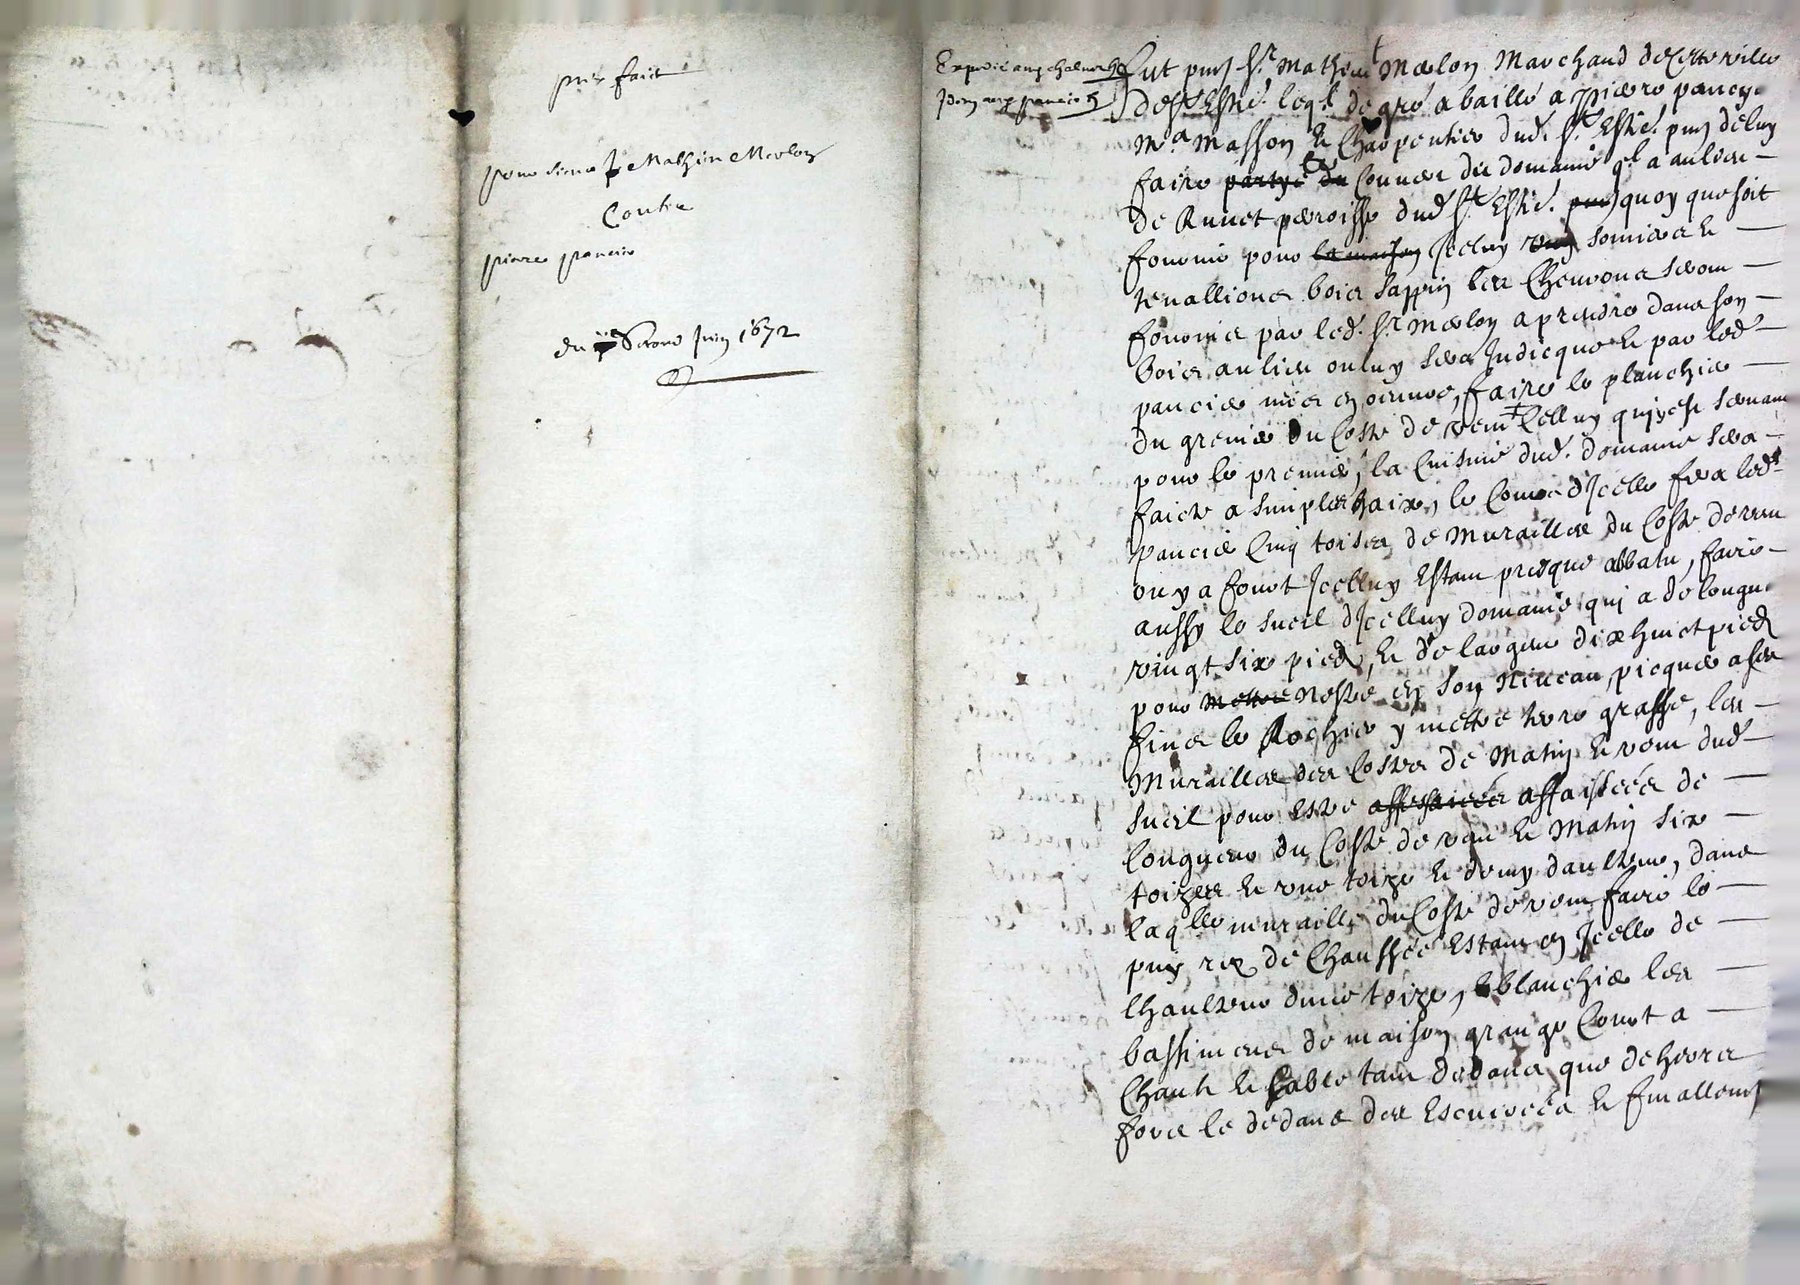 prix faict
pour sieur Mathieu Merlon
Contre
pierre pancie
du Second Juin 1672
Expedié aud
Idem aud pancie
fut pnt Sr. Mathieu Merlon Marchand de cette ville
de St Estie. leql. de gré a baillé a pierre pancye
Me. Masson & Charpentier dud. St. Estie. pnt de luy
faire partye du le Couver du domaine ql a au lieu
de paroisse dud St. Estie. quoy que soit
fournir pour la maison Icelluy sommier &
bois sappin les Chevrons seront
fournis par led. Sr. Merlon a prendre dans son
bois au lieu ou luy sera Indicque & par led
pancie mis en œuvre, faire le planchie
du grenier du Coste de vent Icelluy qui y est servant
pour le premier, la Cuisine dud. domaine sera
faicte a simples haix, le Couver d'Icelle fera led
pancie Cinq toises de Murailles du Coste de vent
ou y a fourt Icelluy Estant presque abbatu, faire
aussy le sueil d'Icelluy domaine qui a de longu
vingt six pied, & de largeur dix huict pied
pour Mettre Mettre en son Niveau, picquer a ses
fins le Rochier y mettre terre grasse, les
Murailles des Costes de Matin & vent dud
sueil pour Estre affaissées de
longueur du Coste de vent & Matin six
toizes & une toize & demy d'aulteur, dans
laqlle muraille du Coste de vent faire le
puy rez de Chaussée Estant en Icelle de
lhaulteur d'une toize, & blanchie les
bastimens de maison grange Court a
Chaux & sable tant dedans que dehors
fors le dedans des Escuirées & finallemt